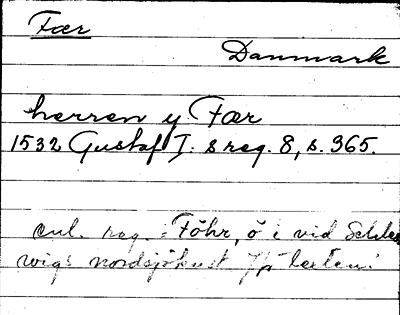 Fær
Danmark
herren y Fær
1532 Gustaf I: s reg. 8, s. 365.
enl. reg. : Föhr, ö i vid Schles
wigs nordsjökust